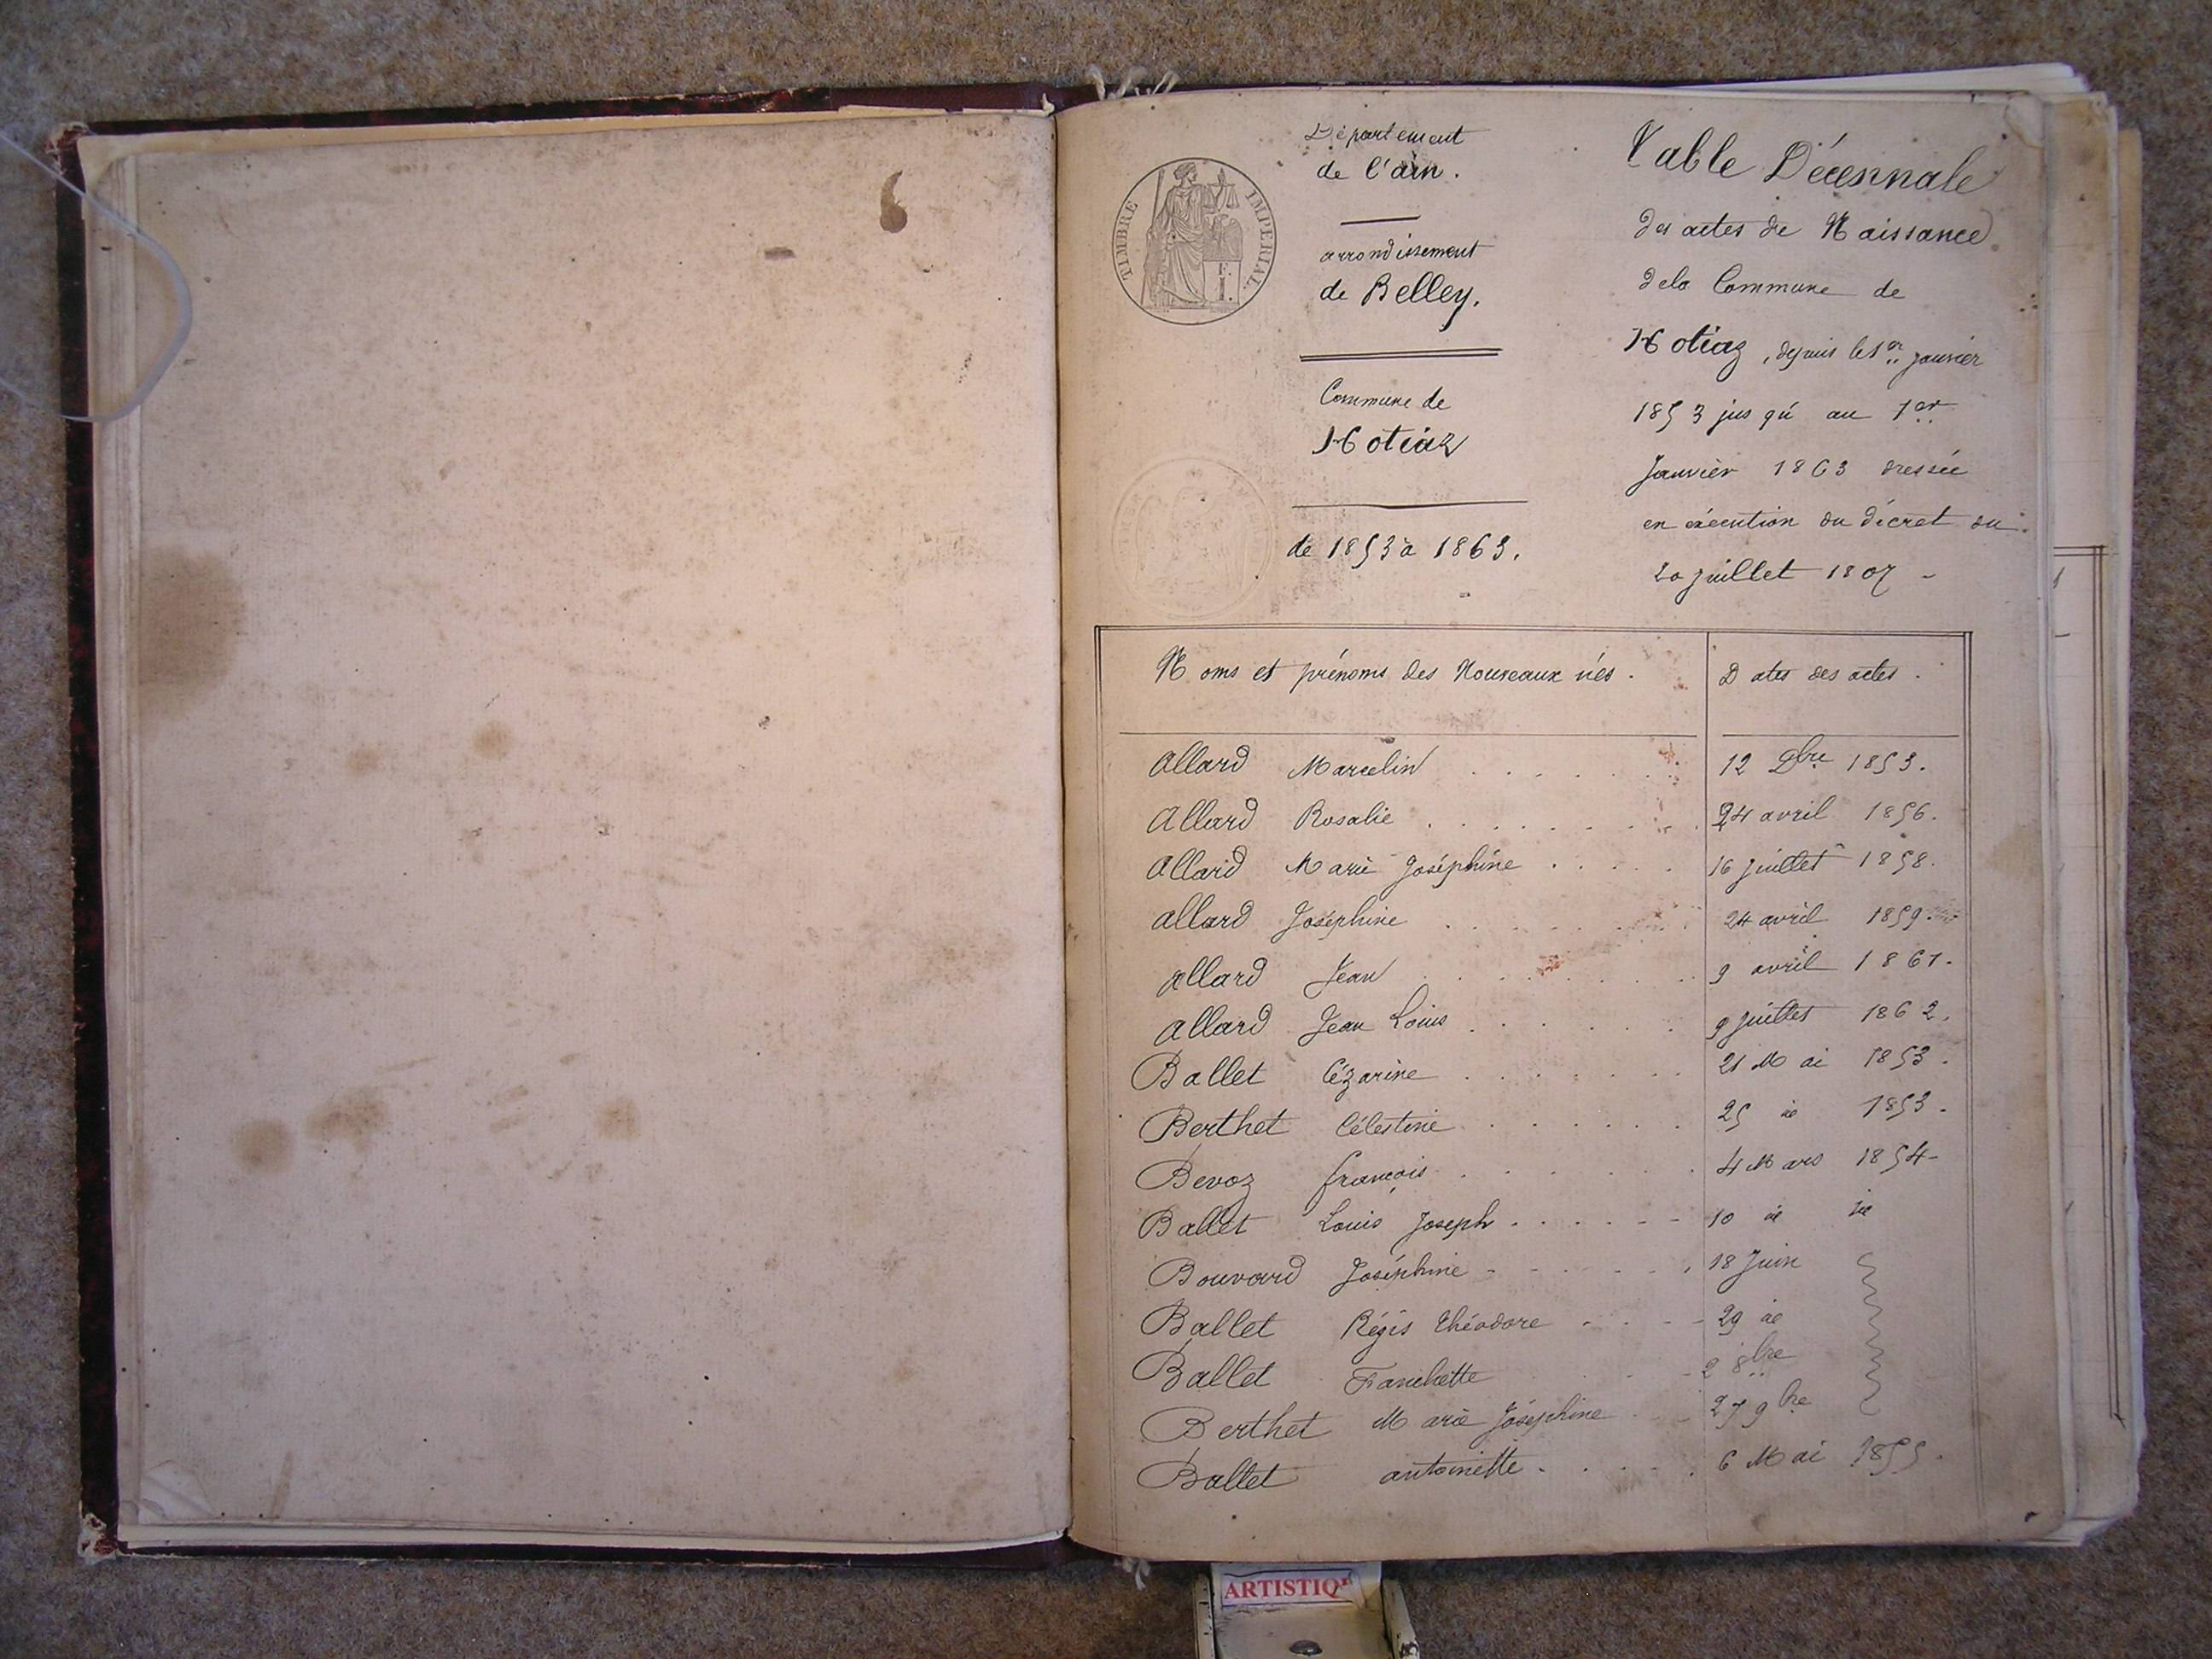 TIMBRE IMPERIAL
Département
de l'ain.
arrondissement
de Belley.
Commune de
Hotiaz
de 1853 à 1863.
Table Décennale
des actes de Naissance
dela Commune de
Hotiaz, depuis le 1er janvier
1853 jusqu'au 1er
Janvier 1863 dressée
en exécution du décret du
20 juillet 1807 -
Noms et prénoms des Nouveaux nés. Dates des actes.
Allard Marcelin 12 Dbre 1853.
Allard Rosalie 24 avril 1856.
Allard Marie Joséphine 16 Juillet 1858.
allard Joséphine 24 avril 1859.
allard Jean 9 avril 1861.
allard Jean Louis 9 Juillet 1862.
Ballet Cézarine 21 Mai 1853.
Berthet Célestine 25 1853.
Bevoz françois 4 Mars 1854-
Ballet Louis Joseph 10
Bouvard Joséphine 18 Juin
Ballet Régis théodore 29
Ballet Fanchette 2 8bre
Berthet Marie Joséphine 27 9bre
Ballet antoinette 6 Mai 1855.
ARTISTIQ